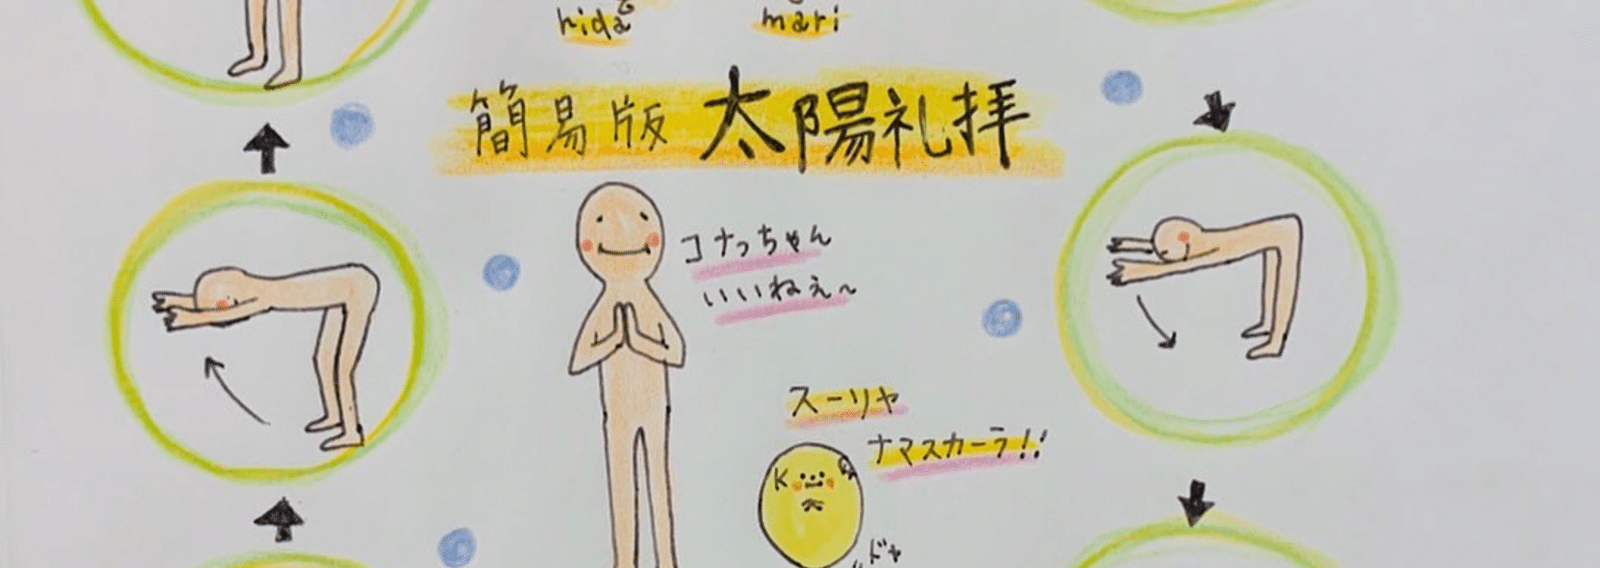 hida
mari
簡易版 太陽礼拝
コナっちゃん
いいねぇ~
スーリヤ
ナマスカーラ!!
K
ドヤ